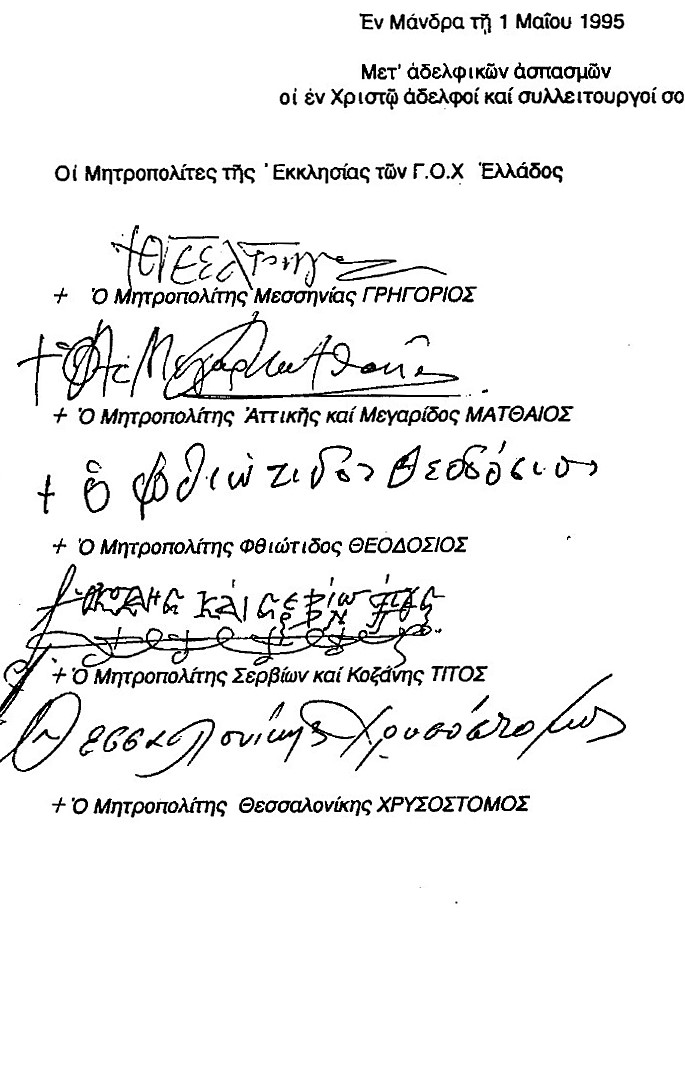 Ἐν Μάνδρα τῇ 1 Μαΐου 1995
Μετ' ἀδελφικῶν ἀσπασμῶν
οἱ ἐν Χριστῷ ἀδελφοί καί συλλειτουργοί σο
Οἱ Μητροπολίτες τῆς Ἐκκλησίας τῶν Γ.Ο.Χ Ἑλλάδος
+ Ὁ Μητροπολίτης Μεσσηνίας ΓΡΗΓΟΡΙΟΣ
+ Ὁ Μητροπολίτης Ἀττικῆς καί Μεγαρίδος ΜΑΤΘΑΙΟΣ
+ ὁ Φθιώτιδος Θεοδόσιος
+ Ὁ Μητροπολίτης Φθιώτιδος ΘΕΟΔΟΣΙΟΣ
+ Ὁ Μητροπολίτης Σερβίων καί Κοζάνης ΤΙΤΟΣ
Θεσσαλονίκης Χρυσόστομος
+ Ὁ Μητροπολίτης Θεσσαλονίκης ΧΡΥΣΟΣΤΟΜΟΣ